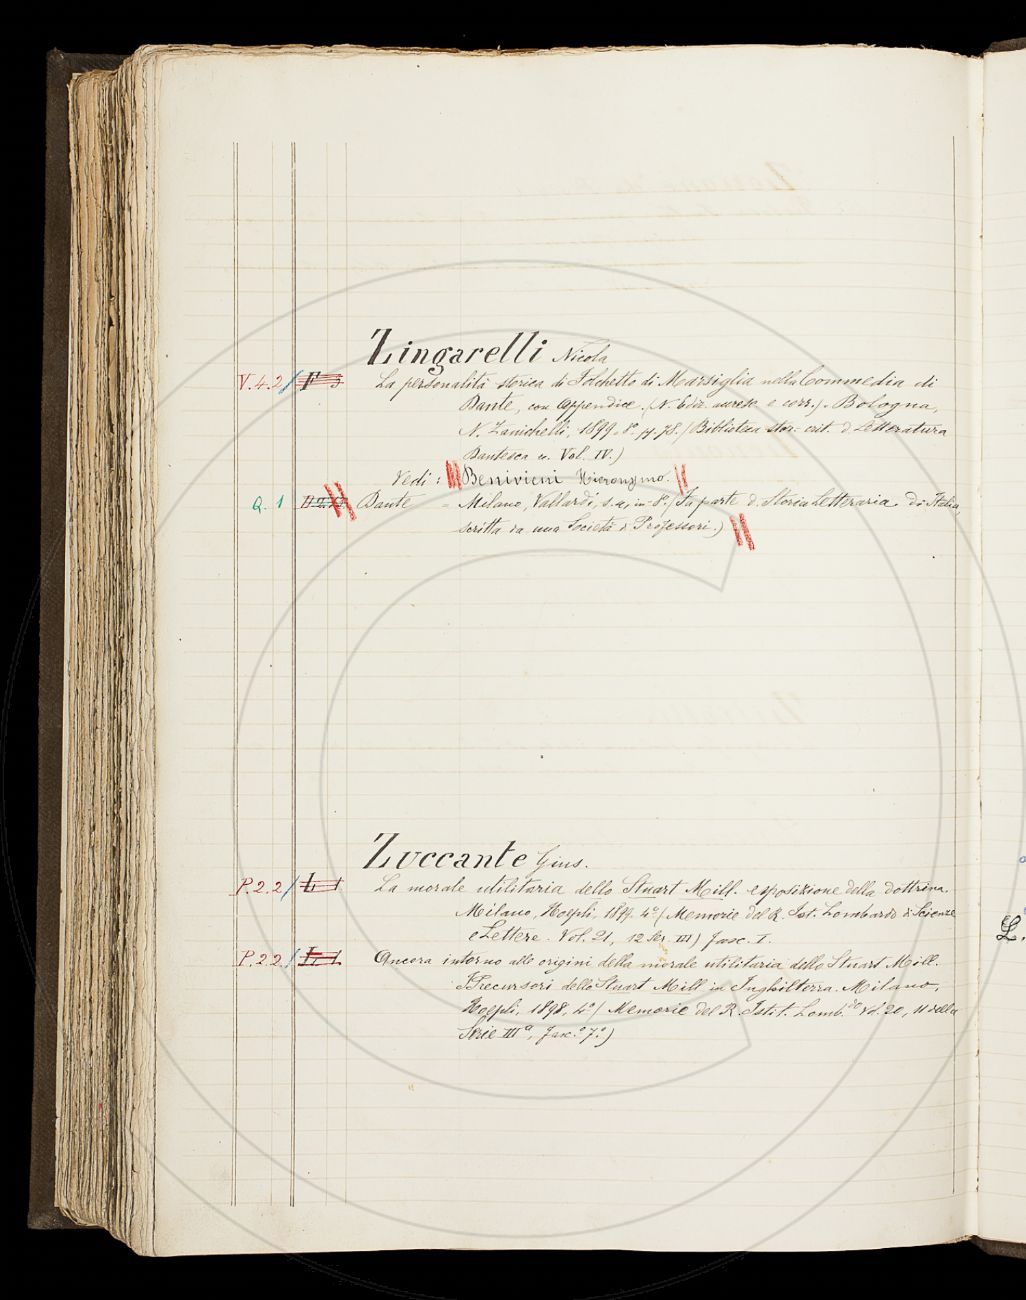 Zingarelli Nicola
V.4.2 / La personalità storica di Folchetto di Marsiglia nella Commedia di
Dante, con Appendice. (N. Ediz. accresc. e corr.) - Bologna,
N. Zanichelli, 1899. 8°. pp. 78. (Biblioteca stor: crit. d. Letteratura
Dantesca n. Vol. IV.)
Vedi: Benivieni Hieronymo.
Q. 1 Dante = Milano, Vallardi, s. a, in-8°. (Fa parte d. Storia Letteraria d'Italia,
scritta da una Società d. Professori.)
Zuccante Gius.
P.2.2 / L 1 La morale utilitaria dello Stuart Mill. esposizione della dottrina.
Milano, Hoepli, 1899. 4° (Memorie del R. Ist. Lombardo d. Scienze
e Lettere. Vol. 21, 12 Ser. III) Fasc. I.
P.2.2 / L. 1 Ancora intorno alle origini della morale utilitaria dello Stuart Mill.
I Precursori dello Stuart Mill in Inghilterra. Milano,
Hoepli, 1898, 4° (Memorie del R. Istit. Lomb.do Vol. 20, 11 della
Serie IIIa, Fasc.° 7.°)
L.